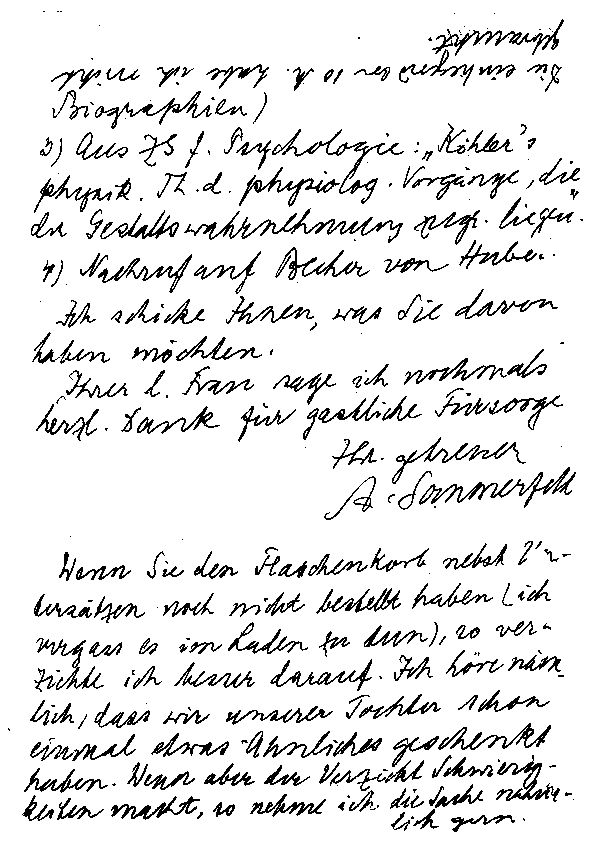 habe ich nicht
gebraucht.
Biographien)
3) Aus ZS f. Psychologie: „Köhler's
physik. Th. d. physiolog. Vorgänge, die
der Gestaltswahrnehmung zugr. liegen."
4) Nachruf auf Becher von Huber.
Ich schicke Ihnen, was Sie davon
haben möchten.
Ihrer l. Frau sage ich nochmals
herzl. Dank für gastliche Fürsorge
Ihr getreuer
A. Sommerfeld
Wenn Sie den Flaschenkorb nebst Un-
tersätzen noch nicht bestellt haben (ich
vergass es im Laden zu tun), so ver-
zichte ich besser darauf. Ich höre näm-
lich, dass wir unserer Tochter schon
einmal etwas Ähnliches geschenkt
haben. Wenn aber der Verzicht Schwierig-
keiten macht, so nehme ich die Sache natür-
lich gern.